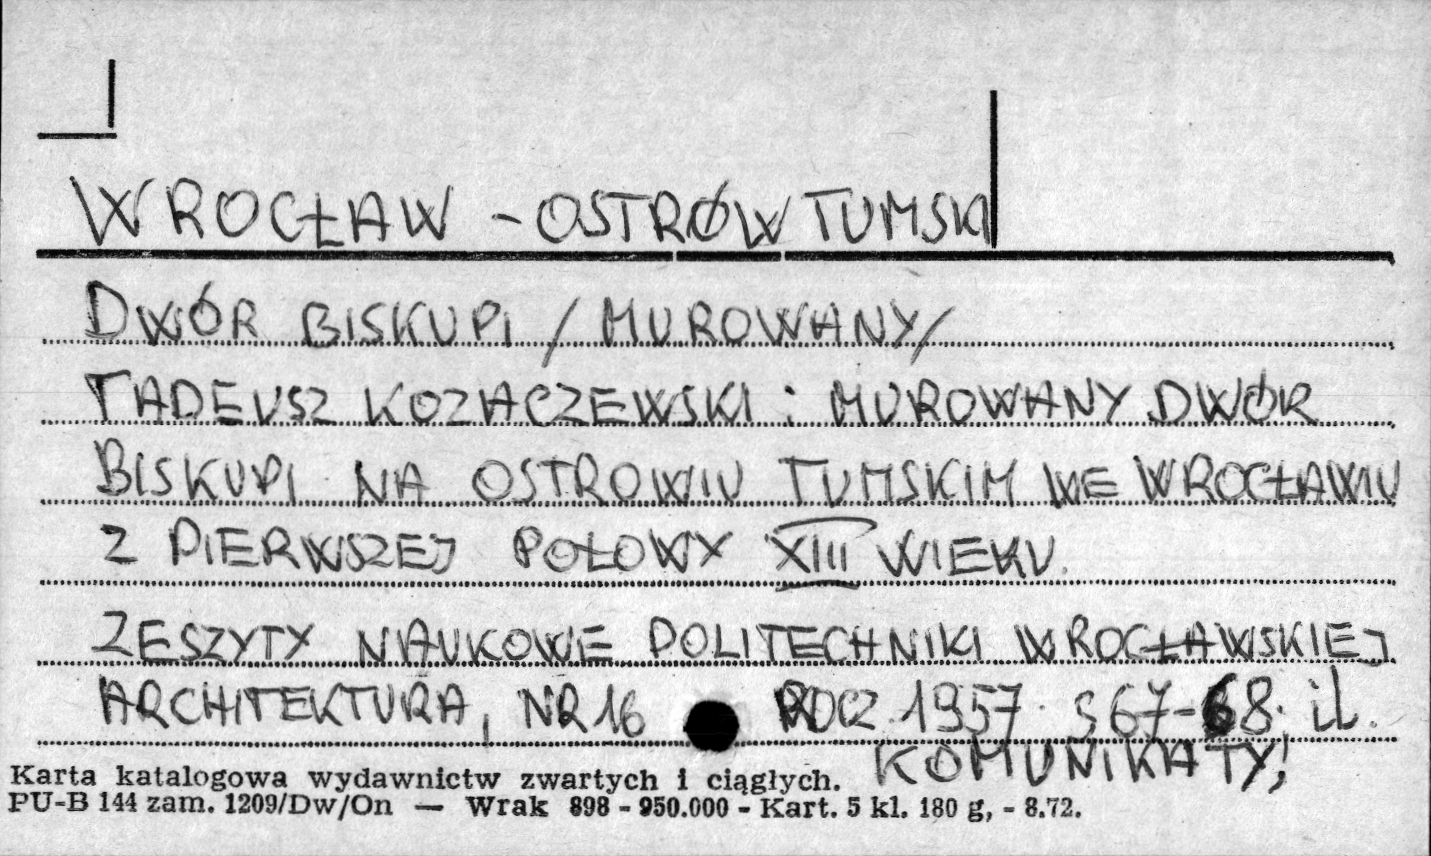 WROCŁAW - OSTRÓW TUMSKI
DWÓR BISKUPI /MUROWANY/
TADEUSZ KOZACZEWSKI : MUROWANY DWÓR
BISKUPI NA OSTROWIU TUMSKIM WE WROCŁAWIU
Z PIERWSZEJ POŁOWY XIII WIEKU.
ZESZYTY NAUKOWE POLITECHNIKI WROCŁAWSKIEJ
ARCHITEKTURA, NR 16 ROCZ. 1957. S 67-68. il.
KOMUNIKATY!
Karta katalogowa wydawnictw zwartych i ciągłych.
PU-B 144 zam. 1209/Dw/On — Wrak 898 - 950.000 - Kart. 5 kl. 180 g, - 8.72.